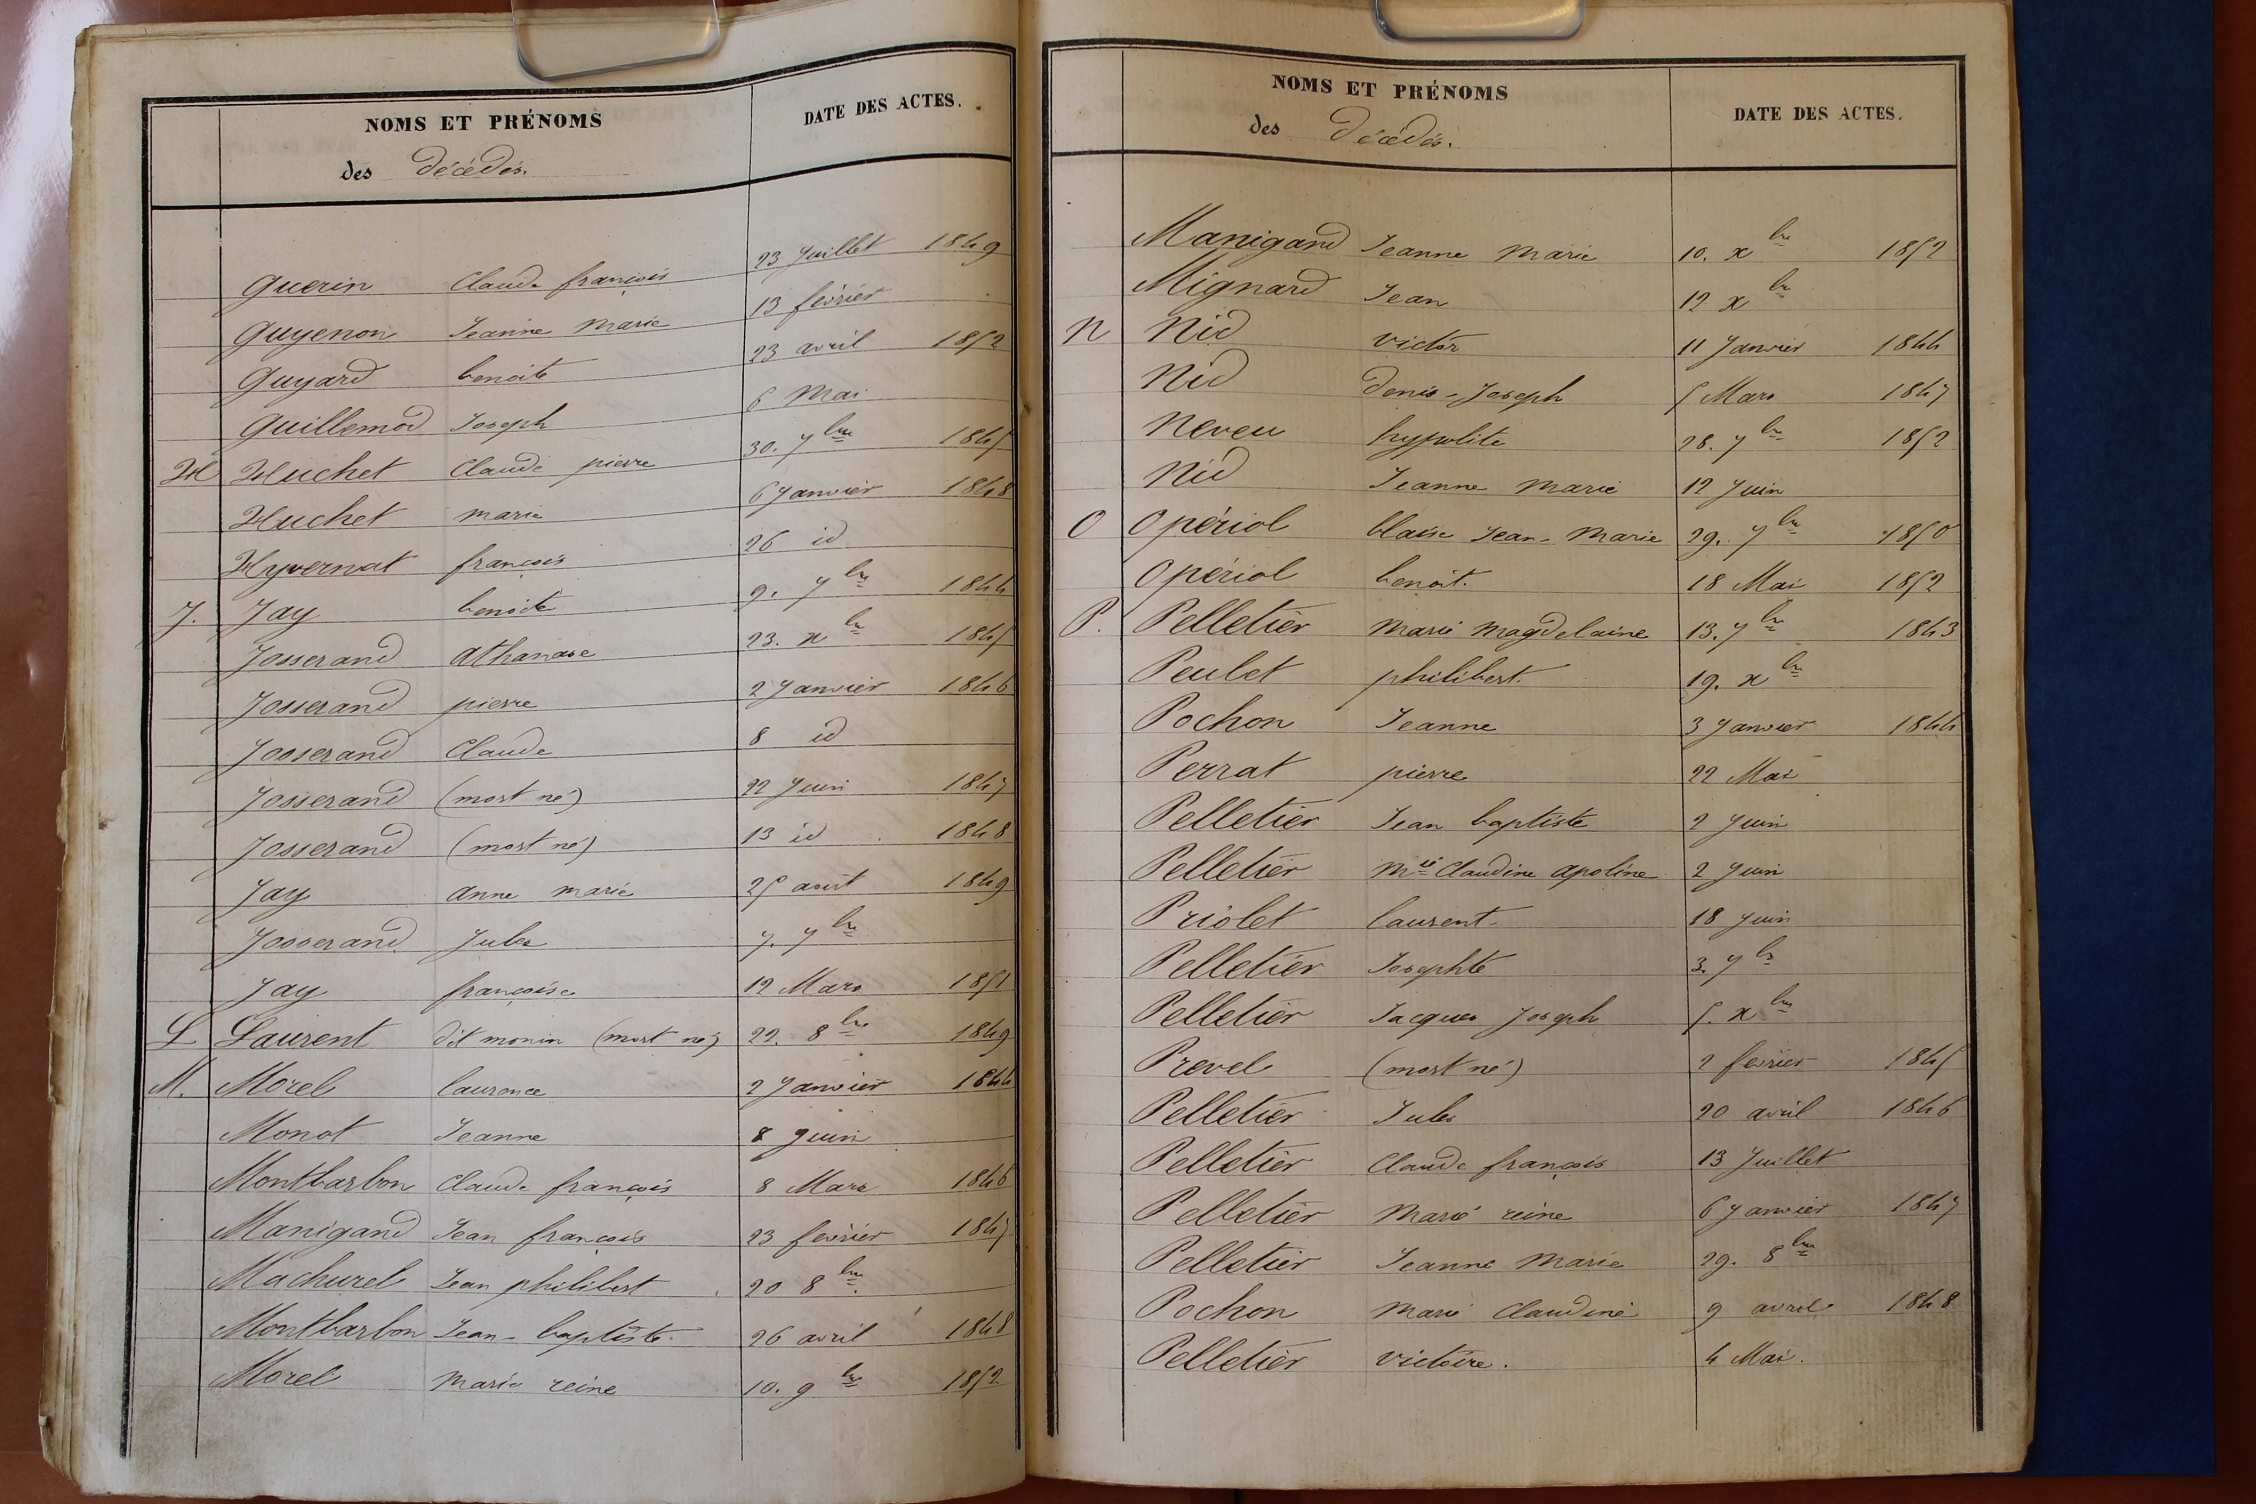 NOMS ET PRÉNOMS DATE DES ACTES.
des Décédés.
Guerin Claude françois 23 Juillet 1849
Guyenon Jeanne Marie 13 février
Guyard benoite 23 avril 1852
Guillemod Joseph 6 Mai
H Huchet Claude pierre 30. 7bre 1845
Huchet marie 6 Janvier 1848
Hyvernat françois 26 id
J. Jay benoite 9. 7bre 1844
Josserand Athanase 23. xbre 1845
Josserand pierre 2 Janvier 1846
Josserand Claude 8 id
Josserand (mort né) 22 Juin 1847
Josserand (mort né) 13 id 1848
Jay anne marie 25 août 1849
Josserand Jules 7. 7bre
Jay françoise 12 Mars 1851
L Laurent dit monin (mort né) 22. 8bre 1849
M. Morel laurence 2 Janvier 1844
Monot Jeanne 8 Juin
Montbarbon Claude françois 8 Mars 1846
Manigand Jean françois 23 février 1847
Machurel Jean philibert 20 8bre
Montbarbon Jean-baptiste. 26 avril 1848
Morel Marie reine 10. 9bre 1852
NOMS ET PRÉNOMS DATE DES ACTES.
des Décédés.
Manigand Jeanne Marie 10. xbre 1852
Mignard Jean 12 xbre
N Nid victor 11 Janvier 1844
Nid Denis-Joseph 5 Mars 1847
Neveu hypolite 28. 7bre 1852
Nid Jeanne Marie 12 Juin
O Opériol blaise Jean-Marie 29. 7bre 1850
Opériol benoit. 18 Mai 1852
P. Pelletier Marie Magdelaine 13. 7bre 1843
Peulet philibert. 19. xbre
Pochon Jeanne 3 Janvier 1844
Perrat pierre 22 Mai
Pelletier Jean baptiste 2 Juin
Pelletier Mie Claudine apoline 2 Juin
Priolet laurent. 18 Juin
Pelletier Josephte 3. 7bre
Pelletier Jacques Joseph 5. xbre
Prevel (mort né) 2 février 1845
Pelletier Jules 20 avril 1846
Pelletier Claude françois 13 Juillet
Pelletier Marie reine 6 Janvier 1847
Pelletier Jeanne Marie 29. 8bre
Pochon Marie Claudine 9 avril 1848
Pelletier victoire. 4 Mai.